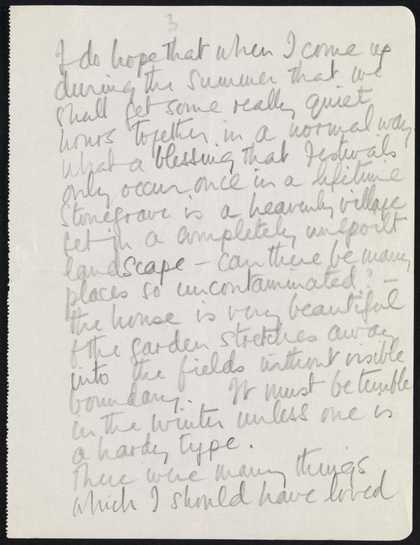 3
I do hope that when I come up
during the summer that we
shall get some really quiet
hours together in a normal way
what a blessing that Festivals
only occur once in a lifetime
Stonegrave is a heavenly village
set in a completely unspoilt
landscape – can there be many
places so uncontaminated? –
the house is very beautiful
& the garden stretches away
into the fields without visible
boundary. It must be terrible
in the winter unless one is
a hardy type.
There were many things
which I should have loved